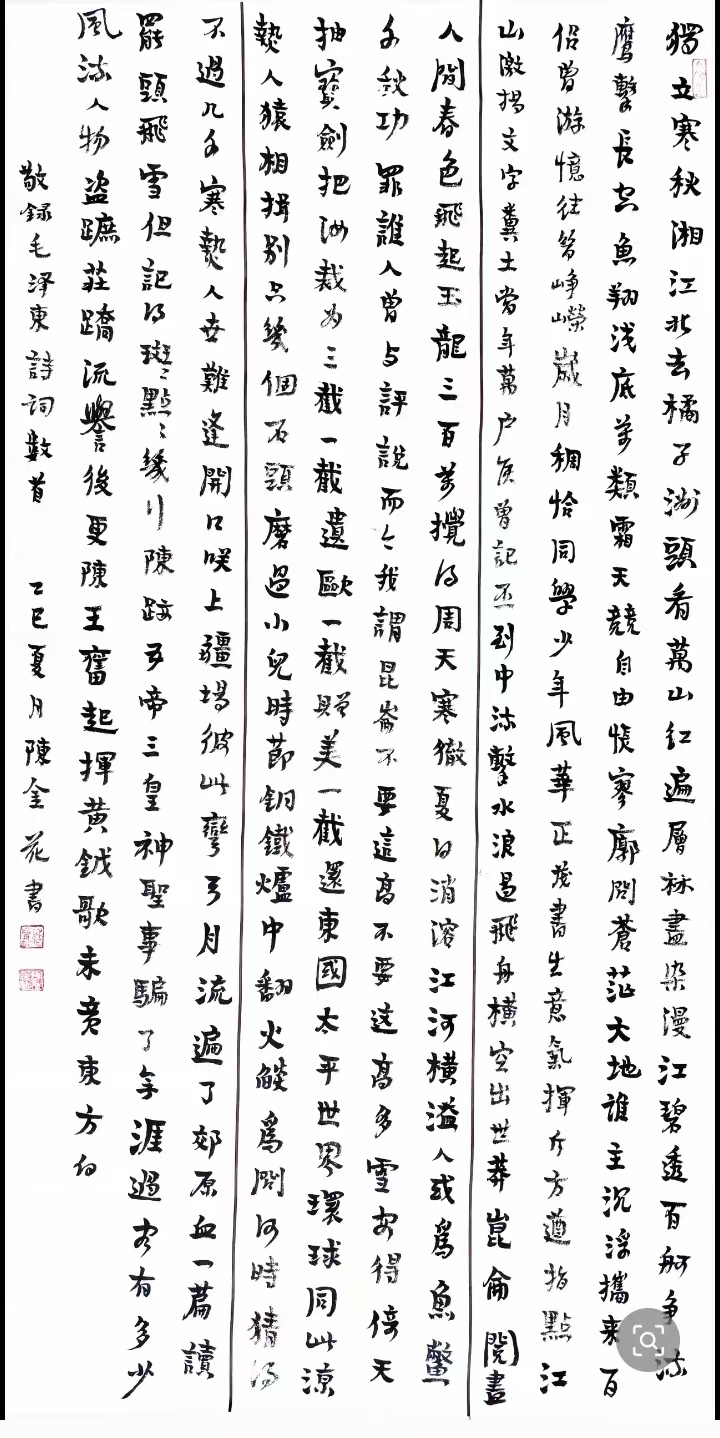 獨立寒秋湘江北去橘子洲頭看萬山紅遍層林盡染漫江碧透百舸爭流
鷹擊長空魚翔浅底萬類霜天競自由悵寥廓問蒼茫大地誰主沉浮攜来百
侣曾游憶往昔崢嶸歲月稠恰同學少年風華正茂書生意氣揮斥方遒指點江
山激揚文字糞土當年萬户侯曾記否到中流擊水浪遏飛舟橫空出世莽崑侖閱盡
人間春色飛起玉龍三百萬攪得周天寒徹夏日消溶江河橫溢人或爲魚鱉
千秋功罪誰人曾与評說而今我謂昆崙不要這高不要这高多雪安得倚天
抽寶劍把汝裁为三截一截遺歐一截贈美一截還東國太平世界環球同此涼
熱人猿相揖别只幾個石頭磨過小兒時節銅鐵爐中翻火燄爲問何時猜得
不過几千寒熱人世難逢開口咲上疆場彼此彎弓月流遍了郊原血一篇讀
罷頭飛雪但記得斑〻點〻幾行陳跡五帝三皇神聖事騙了無涯過客有多少
風流人物盜蹠莊蹻流譽後更陳王奮起揮黄鉞歌未竟東方白
敬録毛泽東詩詞數首 乙巳夏月陳金花書